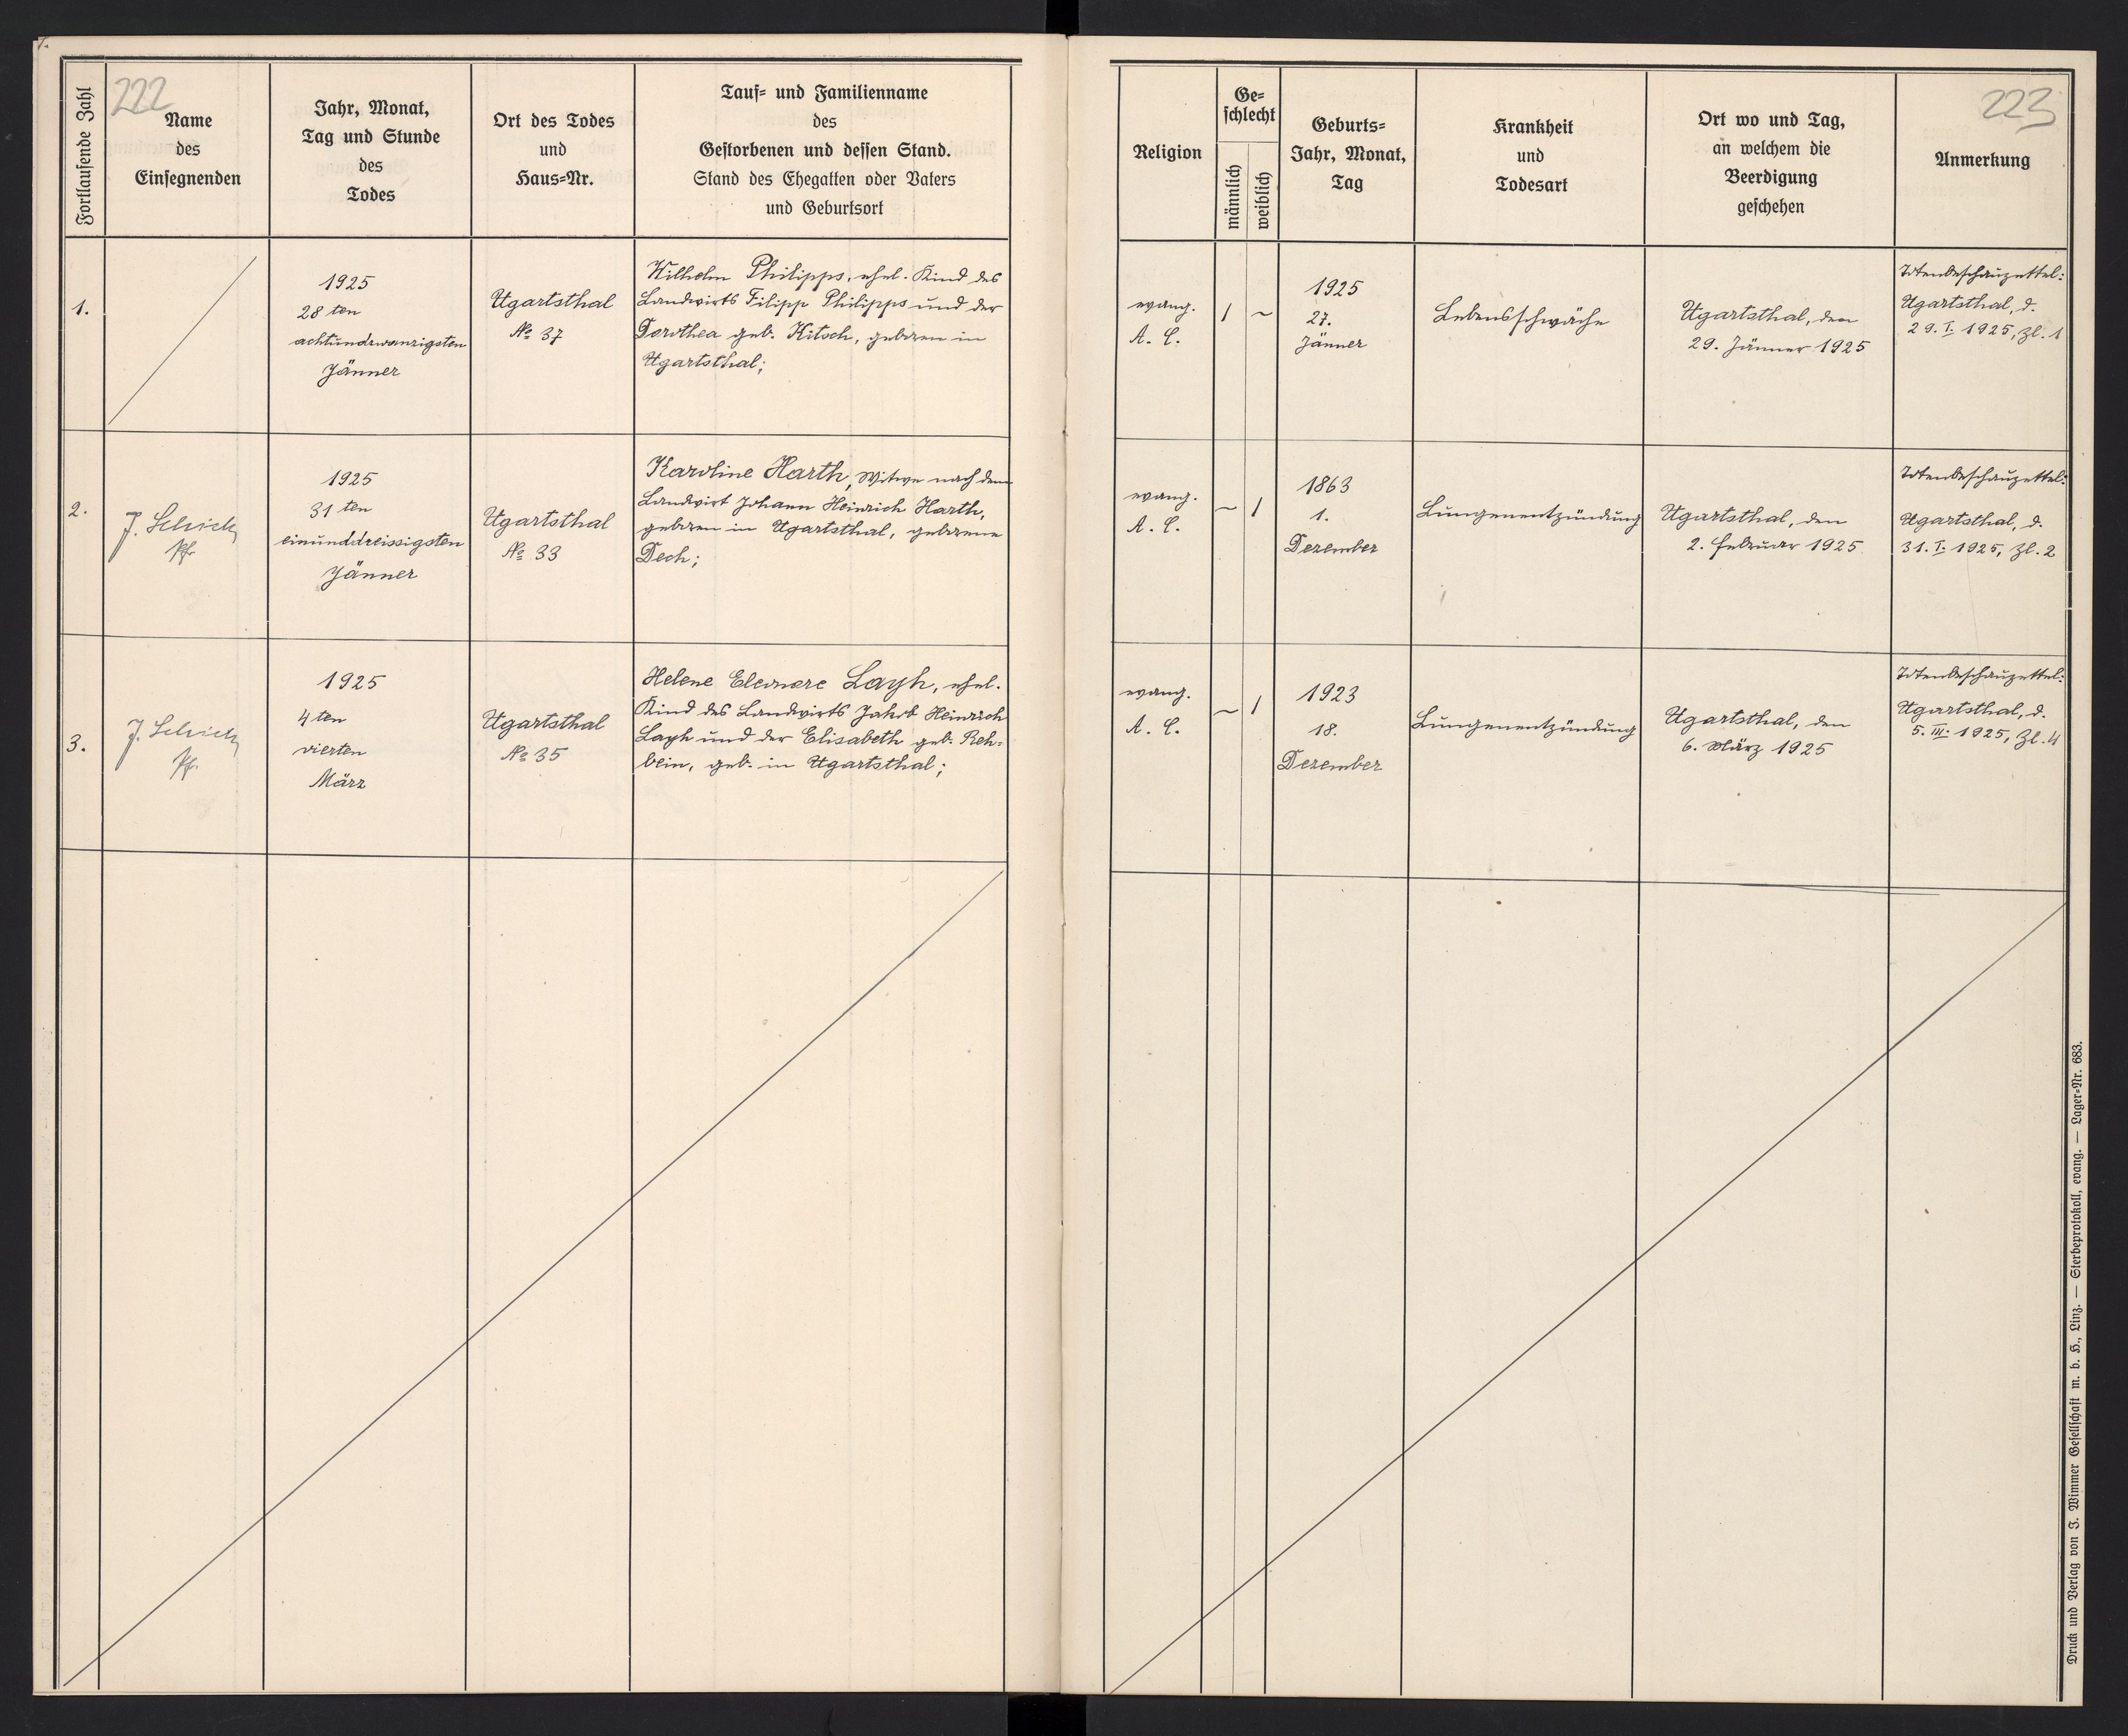 222
Fortlaufende Zahl
Name
des
Einsegnenden
Jahr, Monat,
Tag und Stunde
des
Todes
Ort des Todes
und
Haus-Nr.
Tauf- und Familienname
des
Gestorbenen und dessen Stand.
Stand des Ehegatten oder Vaters
und Geburtsort
1.
1925
28 ten
achtundzwanzigsten
Jänner
Ugartsthal
No 37
Wilhelm Philipps, ehel. Kind des
Landwirts Filipp Philipps und der
Dorothea geb. Kitsch, geboren in
Ugartsthal;
2.
J. Schick
Pfr.
1925
31 ten
einunddreissigsten
Jänner
Ugartsthal
No 33
Karoline Harth, Witwe nach dem
Landwirt Johann Heinrich Harth,
geboren in Ugartsthal, geborene
Dech;
3.
J. Schick
Pfr.
1925
4 ten
vierten
März
Ugartsthal
No 35
Helene Eleonore Layh, ehel.
Kind des Landwirts Jakob Heinrich
Layh und der Elisabeth geb. Reh-
bein, geb. in Ugartsthal;
223
Religion
Ge-
schlecht
männlich
weiblich
Geburts-
Jahr, Monat,
Tag
Krankheit
und
Todesart
Ort wo und Tag,
an welchem die
Beerdigung
geschehen
Anmerkung
evang.
A. C.
1 ~
1925
27.
Jänner
Lebensschwäche
Ugartsthal, den
29. Jänner 1925
Totenbeschauzettel:
Ugartsthal, d.
29. I. 1925, Zl. 1
evang.
A. C.
~ 1
1863
1.
Dezember
Lungenentzündung
Ugartsthal, den
2. Februar 1925
Totenbeschauzettel:
Ugartsthal, d.
31. I. 1925, Zl. 2
evang.
A. C.
~ 1
1923
18.
Dezember
Lungenentzündung
Ugartsthal, den
6. März 1925
Totenbeschauzettel:
Ugartsthal, d.
5. III. 1925, Zl. 4
Druck und Verlag von J. Wimmer Gesellschaft m. b. H., Linz. — Sterbeprotokoll, evang. — Lager-Nr. 683.